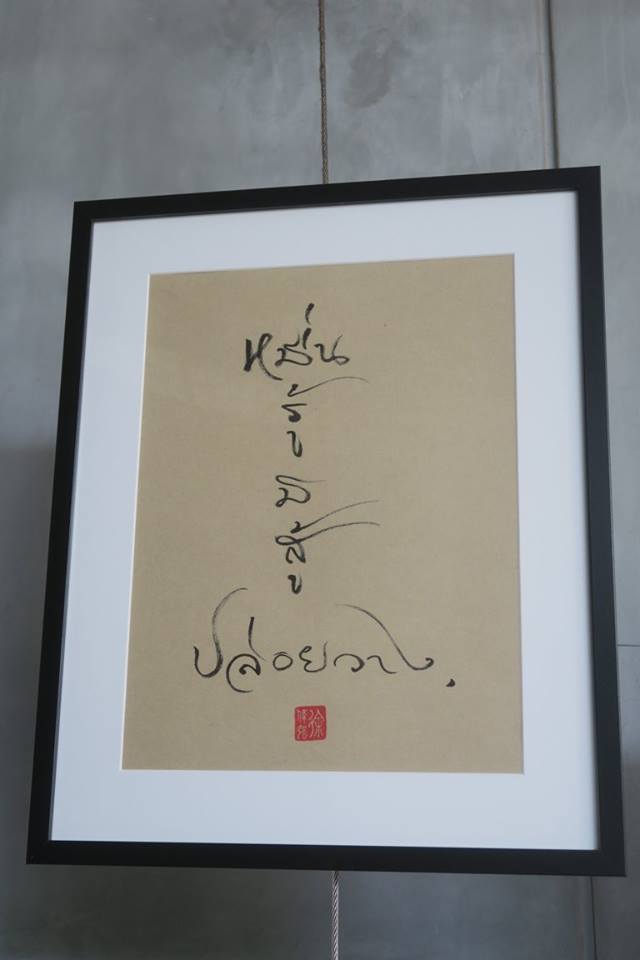 หมื่น
รู้
มิ
สู้
ปล่อยวาง